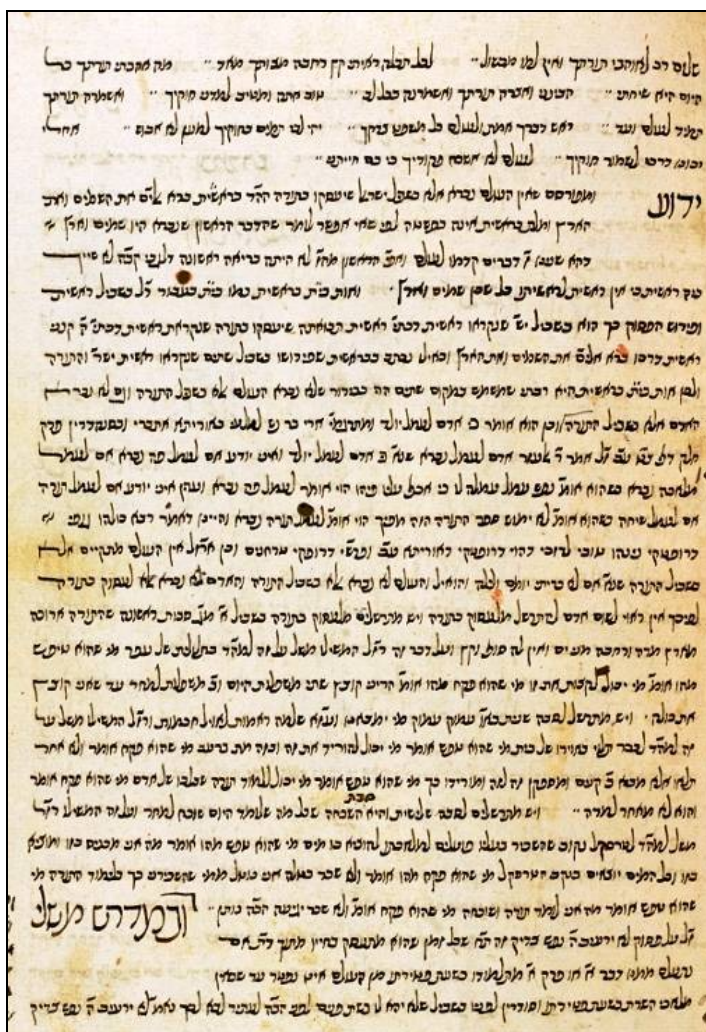 שלום רב לאוהבי תורתך ואין למו מכשול לכל תכלה ראיתי קץ רחבה מצותך מאד מה אהבתי תורתך כל
היום היא שיחתי הבינני ואצרה תורתך ואשמרנה בכל לב טוב אתה ומטיב למדני חוקיך ואשמרה תורתך
תמיד לעולם ועד ראש דברך אמת ולעולם כל משפט צדקך יהי לבי תמים בחוקיך למען לא אבוש
דרכי לשמור חוקיך לעולם לא אשכח פקודיך כי בם חייתני
ידוע ומפורסם שאין העולם נברא אלא בשביל ישראל שיעסקו בתורה הה״ד בראשית ברא אלים את השמים ואת
הארץ ומלת בראשית אינה כפשטה לפי שאי אפשר לומר שהדבר הראשון שנברא היו שמים וארץ
דהא דברים קדמו לעולם ואפי׳ הראשון מהם לא היתה בריאה ראשונה דלגבי הקבה לא שייך
בהם ראשית כי אין ראשית לראשיתו כל שכן שמים וארץ ואות בית בראשית כמו בית בעבור ר״ל בשביל ראשית
ופירוש הפסוק כך הוא בשביל יש׳ שנקראו ראשית דכתי׳ ראשית תבואתה שיעסקו בתורה שנקראת ראשית דכתי׳ ה׳ קנני
ראשית דרכו ברא אלים את השמים ואת הארץ וכאילו נכתב בבראשית שפירושו בשביל שתים שנקראו ראשית ישר׳ והתורה
ולכן אות בית בראשית היא רבתי שמשמש במקום שתים הרי בבירור שלא נברא העולם אלא בשביל התורה וגם לא נברא
האדם אלא בשביל התורה וכן הוא אומר כי אדם לעמל יולד ומתרגמי׳ ארי בר נש למלעי באוריתא אתברי ובסנהדרין פרק
חלק דף צ״ט ע״ב אמר ר׳ אלעזר אדם לעמל נברא שנא׳ כי אדם לעמל יולד ואיני יודע אם לעמל פה נברא אם לעמל
מלאכה נברא כשהוא אומ׳ נפש עמל עמלה לו כי אכף עליו פיהו הוי אומר לעמל פה נברא ועדין איני יודע אם לעמל תורה
אם לעמל שיחה כשהוא אומ׳ לא ימוש ספר התורה הזה מפיך הוי אומ׳ לעמל תורה נברא והיינו דאמר רבא כולהו גופי
דרופתקי נינהו טובי לדזכי דהוי דרופתקי דאוריתא ע״כ ופרשי׳ דרופתקי טרחנים וכן ארז״ל אין העולם מתקיים אלא
בשביל התורה שנא׳ אם לא בריתי יומם ולילה והואיל והעולם לא נברא אלא בשביל התורה והאדם לא נברא אלא לעסוק בתורה
לפיכך אין ראוי לשום אדם להתרשל מלעסוק בתורה ויש מתרשלים מלעסוק בתורה בשביל א׳ מג׳ סבות ראשונה שהתורה ארוכה
מארץ מדה ורחבה מני ים ואין לה סוף וקץ ועל דבר זה רז״ל המשילו משל על זה למה״ד לתלולית של עפר מי שהוא טיפש
מהו אומ׳ מי יכול לקצות את זו מי שהוא פקח מהו אומ׳ הריני קוצץ שתי משפלות היום וב׳ משפלות למחר עד שאני קוצץ
את כולה ויש מתרשל לסבה שנית עמוק עמוק מי ימצאנו שלמה ראמות לאויל חכמות ורז״ל המשילו משל על
זה למה״ד לככר תלוי באוירו של בית מי שהוא טפש אומר מי יכול להוריד את זה ובזה מת ברעב מי שהוא פקח אומר ולא אחר
תלאו אלא מביא ב׳ קנים ומספקן זה לזה ומורידו כך מי שהוא טפש אומר מי יכול ללמוד תורה שבלבו של אדם מי שהוא פקח אומר
והוא לא מאחר למדה ויש מתרשלים לסבה שלישית והיא סבת השכחה שכל מה שלומד היום שוכח למחר ועל זה המשילו רז״ל
משל למה״ד לטרסקל נקוב שהשכיר בעליו פועלים למלאכתן להוציא בו מים מי שהוא טפש מהו אומר מה אני מכניס בו ומוציא
בו וכל המים יוצאים בנקב הטרסקל מי שהוא פקח מהו אומר ולא שכר אני נוטל ממי ששכירני כך בלמוד התורה מי
שהוא טפש אומר מה אני לומד תורה ושוכחה מי שהוא פקח אומ׳ ולא שכר יגיעה הקבה נותן ובמדרש משלי
על פסוק לא ירעיב ה׳ נפש צדיק זה שכל זמן שהוא מתעסק
נתעלם ממנו דבר א׳ או פרק א׳ מתלמודו בשעת פטירתו מן העולם אינו נפטר עד שבאין
מלאכי השרת בשעת פטירתו וסודרין לפניו בשביל שלא יהא לו בשת פנים לפני הקבה לעתיד לבא לכך נאמ׳ לא ירעיב ה׳ נפש צדיק